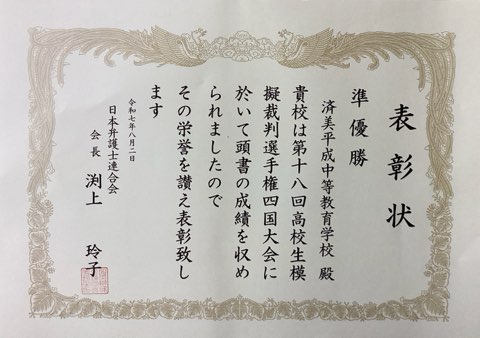 表彰状
準優勝
済美平成中等教育学校 殿
貴校は第十八回高校生模
擬裁判選手権四国大会に
於いて頭書の成績を収め
られましたので
その栄誉を讃え表彰致し
ます
令和七年八月二日
日本弁護士連合会
会長 渕上 玲子